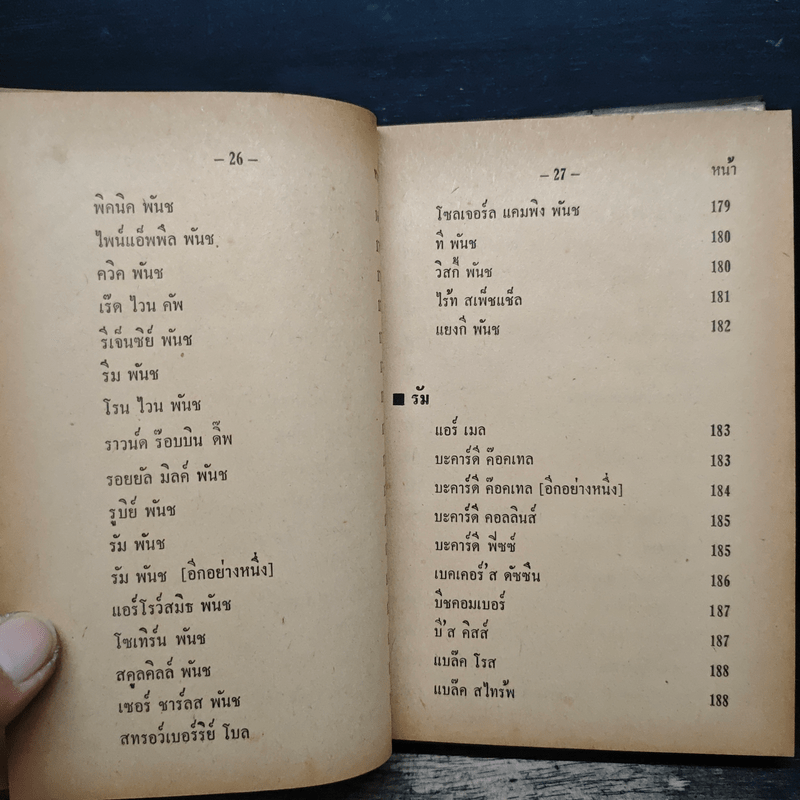 – 26 –
พิคนิค พันช
ไพน์แอ็พพึล พันช
ควิค พันช
เร๊ด ไวน คัพ
รีเจ็นซิย์ พันช
ริม พันช
โรน ไวน พันช
ราวน์ด ร๊อบบิน ดิ๊พ
รอยยัล มิลค์ พันช
รูบิย์ พันช
รัม พันช
รัม พันช [อีกอย่างหนึ่ง]
แอร์โรว์สมิธ พันช
โซเทิร์น พันช
สคูลคิลล์ พันช
เซอร์ ชาร์ลส พันช
สทรอว์เบอร์ริย์ โบล
– 27 – หน้า
โซลเจอร์ล แคมพิง พันช 179
ที พันช 180
วิสกี้ พันช 180
ไร้ท สเพ็ชแช็ล 181
แยงกี พันช 182
■ รัม
แอร์ เมล 183
บะคาร์ดี ค๊อคเทล 183
บะคาร์ดี ค๊อคเทล [อีกอย่างหนึ่ง] 184
บะคาร์ดี คอลลินส์ 185
บะคาร์ดี ฟีซซ์ 185
เบคเคอร์'ส ดัชชิน 186
บีชคอมเบอร์ 187
บี'ส คิสส์ 187
แบล๊ค โรส 188
แบล๊ค สไทร้พ 188